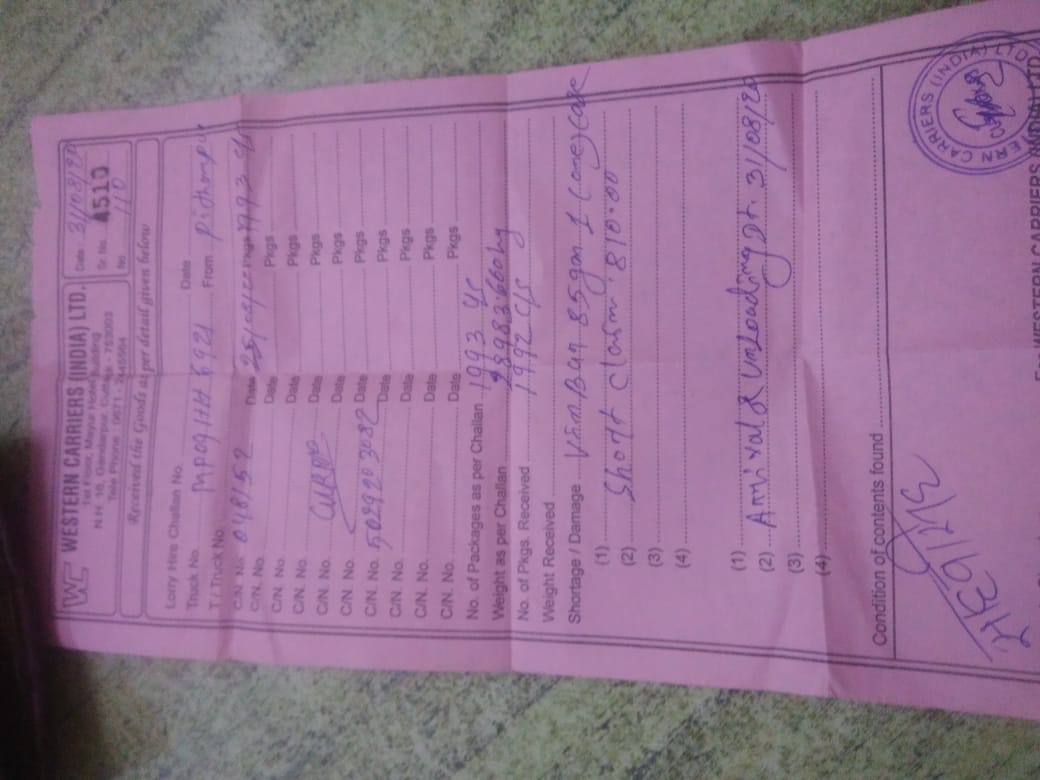 WESTERN CARRIERS (INDIA) LTD.
1st Floor, Mayur Hotel Building
N.H. 16, Gandarpur, Cuttack - 753003
Tele Phone : 0671 -
Date 31/08/20
Sr. No. 4510
No 110
Received the Goods as per detail given below
Lorry Hire Challan No. Date
Truck No. MP09HH 6921 From Pithampur
T / Truck No
C/N. No. 048152 Date Pkgs 1993 C/S
C/N. No. Date Pkgs
C/N. No. Date Pkgs
C/N. No. Date Pkgs
C/N. No. Date Pkgs
C/N. No. 5029203082 Date Pkgs
C/N. No. Date Pkgs
C/N. No. Date Pkgs
C/N. No. Date Pkgs
No. of Packages as per Challan 1993 C/S
Weight as per Challan 28983.660 kg
No. of Pkgs. Received 1992 C/S
Weight Received
Shortage / Damage Vim Bar 85 gm 1 (one) case
(1) Short Claim : 810.00
(2)
(3)
(4)
(1)
(2) Arrival & Unloading Dt. 31/08/20
(3)
(4)
Condition of contents found
WESTERN CARRIERS (INDIA) LTD
For WESTERN CARRIERS (INDIA) LTD